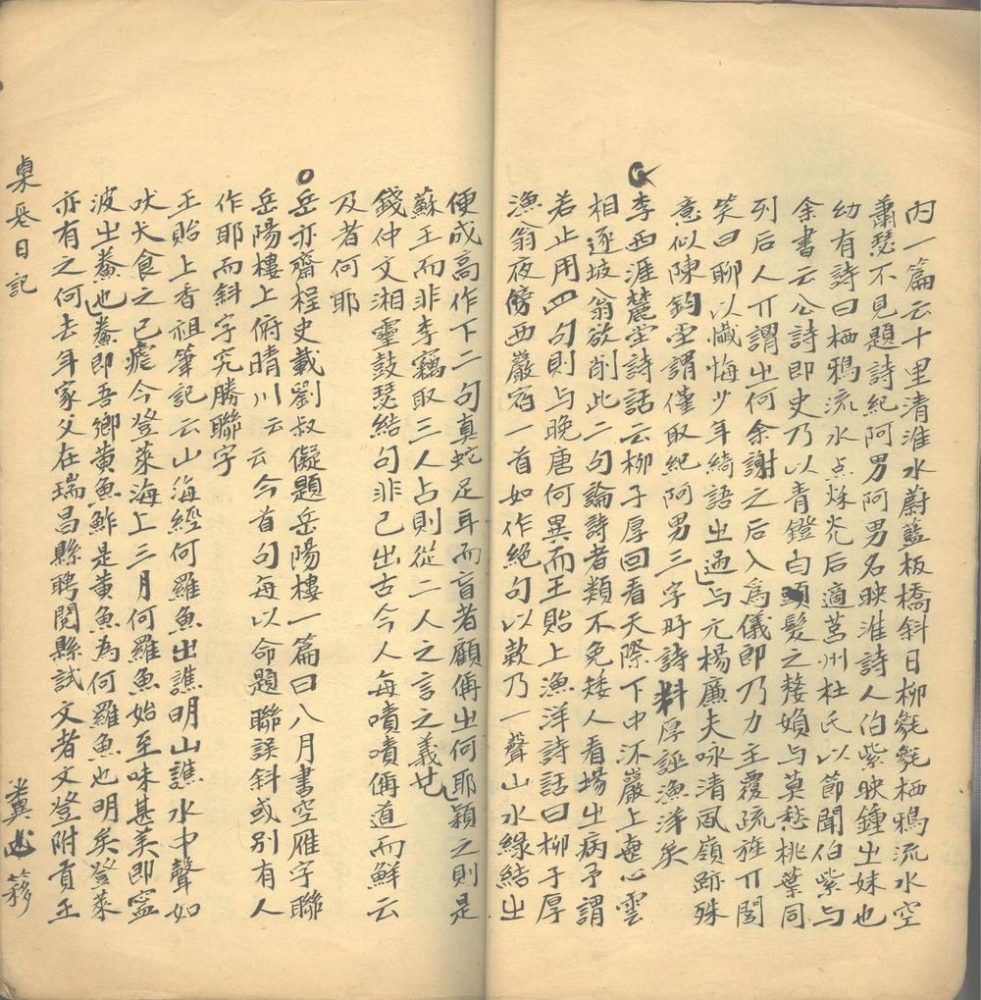 内一篇云十里清淮水蔚藍板橋斜日柳毿毿栖鴉流水空
蕭瑟不見題詩紀阿男阿男名映淮詩人伯紫映鍾出妹也
幼有詩曰栖鴉流水点秌光后適莒州杜氏以節聞伯紫与
余書云公詩即史乃以青鐙白頭髮之嫠媍与莫愁桃葉同
列后人丌謂出何余謝之后入為儀郎乃力主覆疏旌丌閭
笑曰聊以懴悔少年綺語出過与元楊廉夫咏清風嶺跡殊
意似陳鈞堂謂僅取紀阿男三字時詩料厚誣漁洋矣
李西涯麓堂詩話云柳子厚回看天際下中流巖上無心雲
相逐坡翁欲削此二句論詩者類不免矮人看場出病予謂
若止用四句則与晚唐何異而王貽上漁洋詩話曰柳子厚
漁翁夜傍西巖宿一首如作絕句以欸乃一聲山水綠結出
便成高作下二句真蛇足耳而盲者顧偁出何耶穎之則是
蘇王而非李竊取三人占則從二人之言之義也
錢仲文湘靈鼓瑟結句非己出古今人每嘖嘖偁道而鮮云
及者何耶
岳亦齋桯史載劉叔儗題岳陽樓一篇曰八月書空雁字聯
岳陽樓上俯晴川云云今首句每以命題聯誤斜或別有人
作耶而斜字究勝聯字
王貽上香祖筆記云山海經何羅魚出譙明山譙水中聲如
吠犬食之已癰今登萊海上三月何羅魚始至味甚美即寍
波出鯗也鯗即吾鄉黄魚鮓是黄魚為何羅魚也明矣登萊
亦有之何去年家父在瑞昌縣聘閱縣試文者文登附貢王
枲長日記
冀 簃